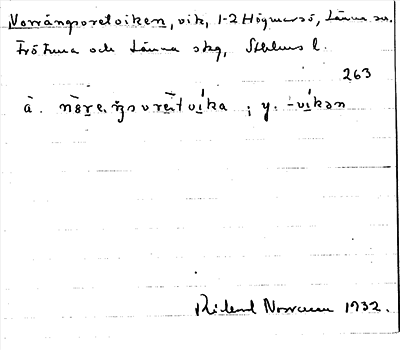 Norrängsvretviken, vik, 1-2 Högmarsö, Länna sn.
Frötuna och Länna skg, Sthlms l.
263
a. nǫ̀rẹŋsvrètvíka ; y. -víkən
Rickard Norrman 1932.